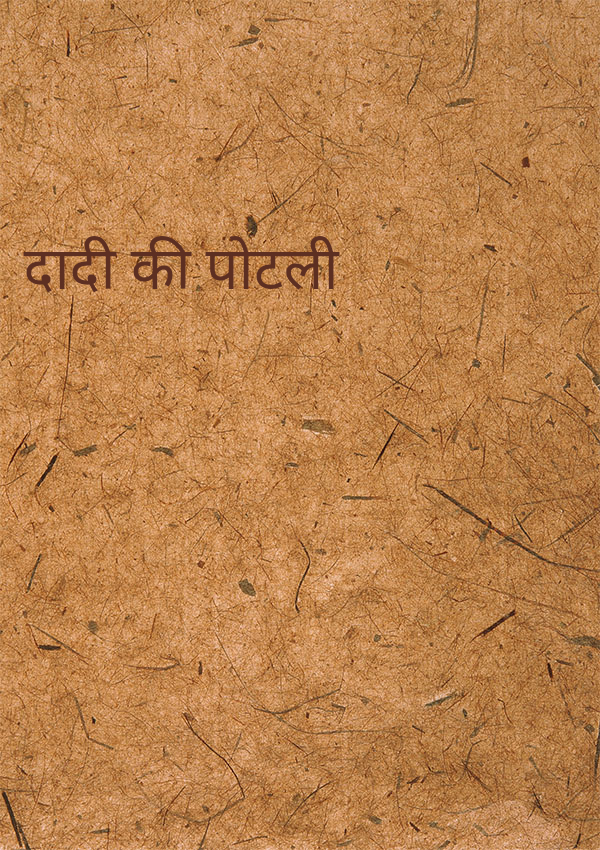 दादी की पोटली